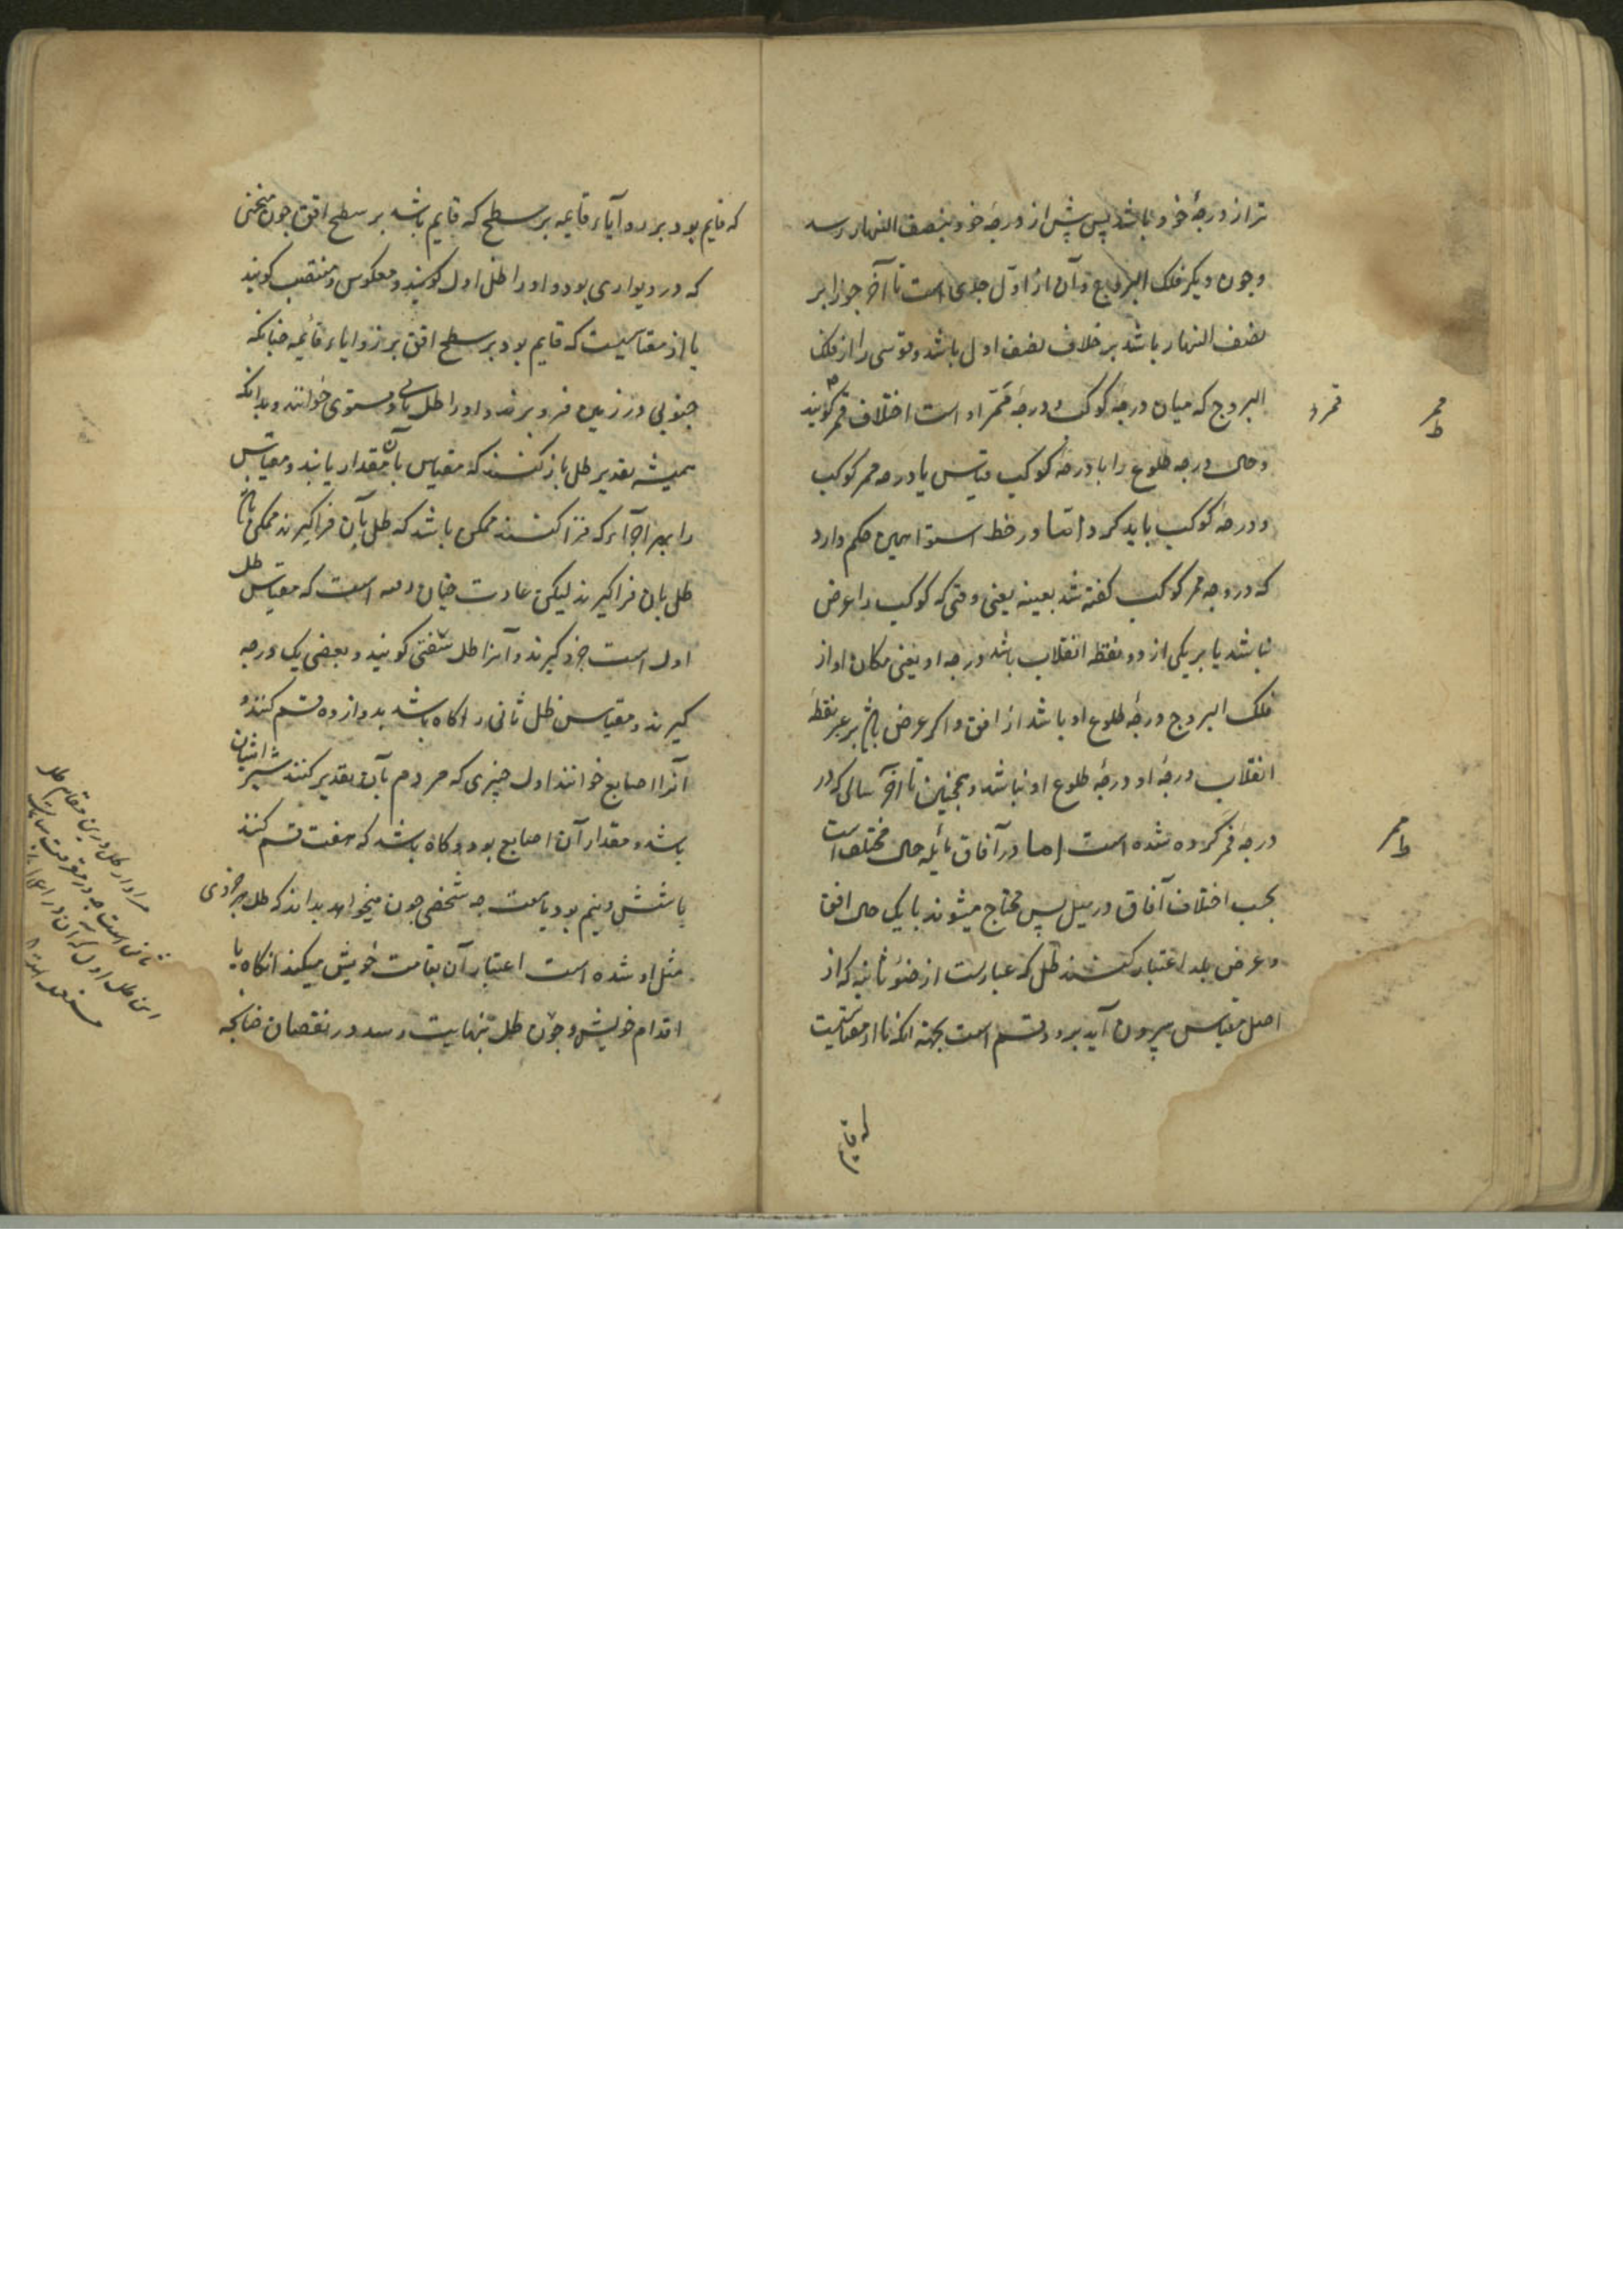 تر از درجهٔ خود باشد پس پیش از درجه خود بنصف النهار رسد
و چون دیکر فلک البروج و آن از اول جدی است تا آخر جوزا بر
نصف النهار باشد بر خلاف نصف اول باشد و قوسی را از فلک
البروج که میان درجهٔ کوکب و درجهٔ ممر او است اختلاف ممر کویند
و حال درجه طلوع را با درجهٔ کوکب قیاس با درجه ممر کوکب
و درجهٔ کوکب باید کرد اما در خط استوا همین حکم دارد
که در درجه ممر کوکب کفته شد بعینه یعنی وقتی که کوکب را عرض
نباشد یا بر یکی از دو نقطه انقلاب باشد درجه او یعنی مکان او از
فلک البروج درجهٔ طلوع او باشد از افق و اکر عرض باشد بر غیر نقطهٔ
انقلاب درجهٔ او درجهٔ طلوع او نباشد و همچنین تا آخر که در
درجهٔ ممر کرده شده است اما در آفاق مایله حال مختلف است
بحسب اختلاف آفاق در میل پس محتاج میشوند بانک حال افق
و عرض بلد اعتبار کنند ظل که عبارست از ضوء ثانیه که از
اصل مقیاس بیرون آید بر دو قسم است بجهة انکه یا از مقیاسیست
که قایم
که قایم بود بر زوآیاء قایمه بر سطح که قایم باشد بر سطح افق چون میخی
که در دیواری بود و او را ظل اول کویند و معکوس و منتصب کویند
یا از مقیاسیست که قایم بود بر سطح افق بر زوایاء قایمه چنانکه
چوبی در زمین فرو برند و او را ظل ثانی و مستوی خوانند و بدانکه
همیشه تقدیر ظل باز کنند که مقیاس بآن مقدار یابند و مقیاس
را بهر اجزآء که فرا کنند ممکن باشد که ظل بآن فراکیرند ممکن باشد
ظل بان فراکیرند لیکن عادت چنان است که مقیاس ظل
اول است جزو کیرند و آنرا ظل ستینی کویند و بعضی یک درجه
کیرند و مقیاس ظل ثانی را کاه باشد بدوازده قسم کنند و
آنرا اصابع خوانند اول چیزی که مردم بآن تقدیر کنند شبر ایشان
باشد و مقدار آن اصابع بود و کاه باشد که هفت قسم کنند
یا شش و نیم بود چه شخصی چون میخواهد بداند که ظل هر چیزی
مثل او شده است اعتبار آن بقامت خویش میکند انکاه با
اقدام خویش و چون ظل بنهایت رسد در نقصان چنانچه